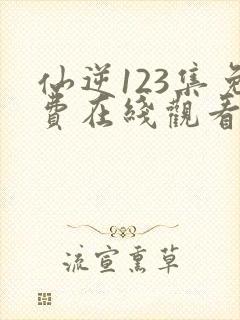 仙逆123集免
费在线觀看
流宣熏草